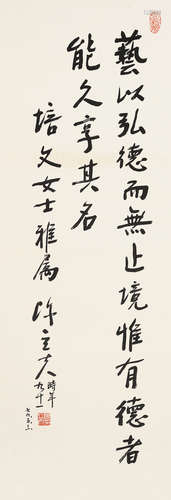 藝以弘德而無止境惟有德者
能久享其名
培文女士雅屬 陳立夫 時年九十一
七九、五、二